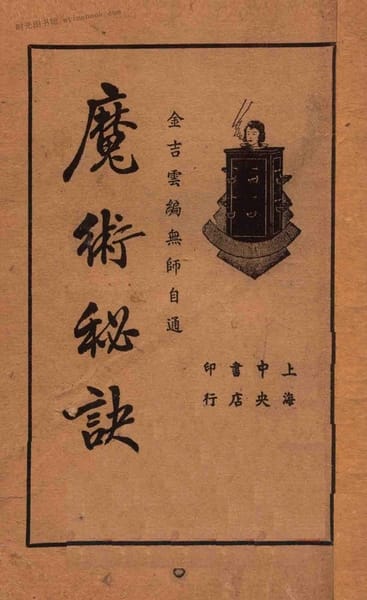 时光图书馆
上海
中央
書店
印行
金吉雲編無師自通
魔術秘訣